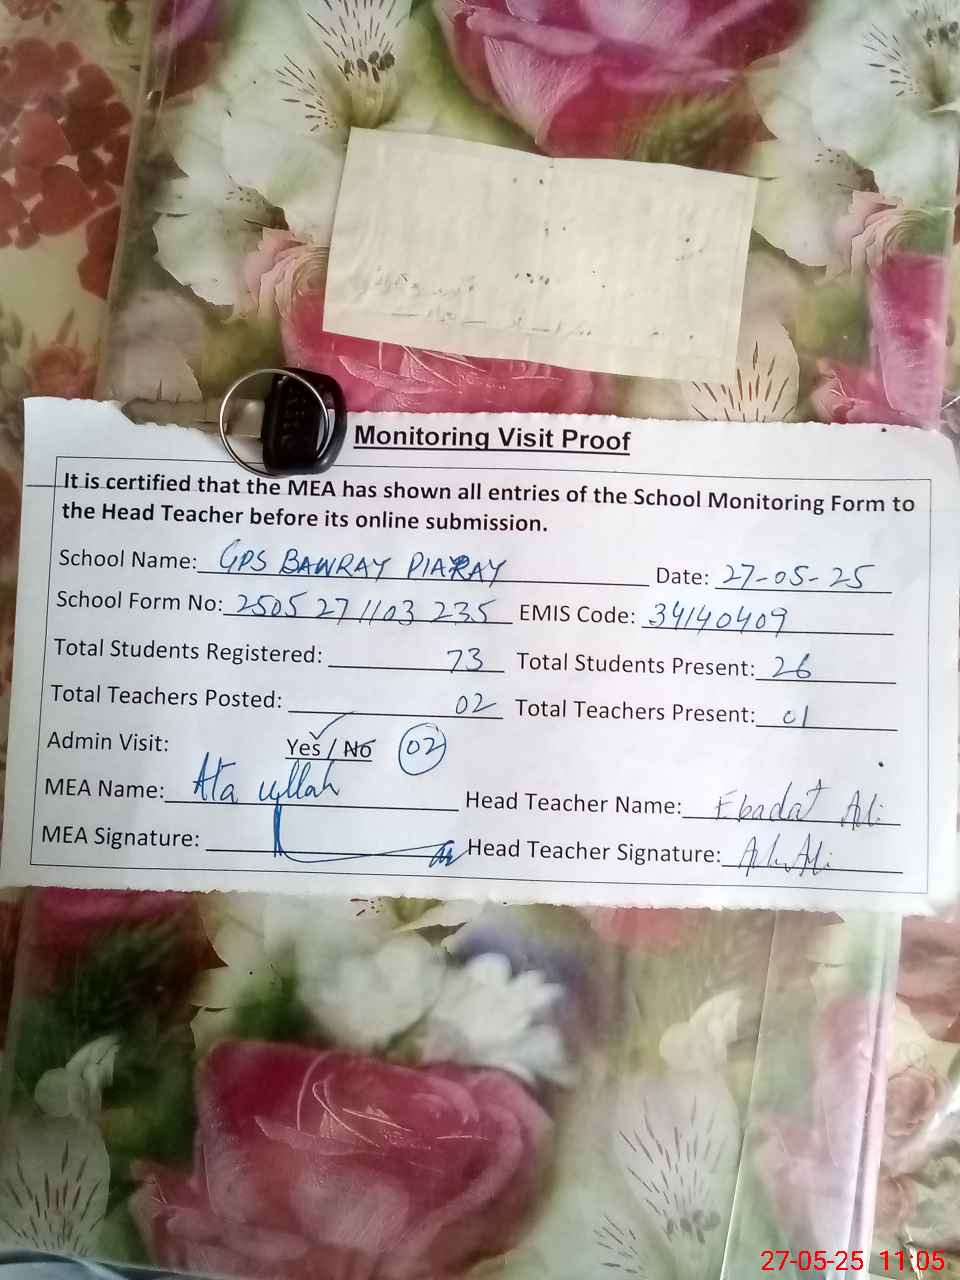 Monitoring Visit Proof
It is certified that the MEA has shown all entries of the School Monitoring Form to
the Head Teacher before its online submission.
School Name: GPS BAWRAY PIARAY Date: 27-05-25
School Form No: 2505 27 1103 235 EMIS Code: 34140409
Total Students Registered: 73 Total Students Present: 26
Total Teachers Posted: 02 Total Teachers Present: 01
Admin Visit: Yes / No 02
MEA Name: Ata ullah Head Teacher Name: Ebadat Ali
MEA Signature: Head Teacher Signature:
27-05-25 11:05